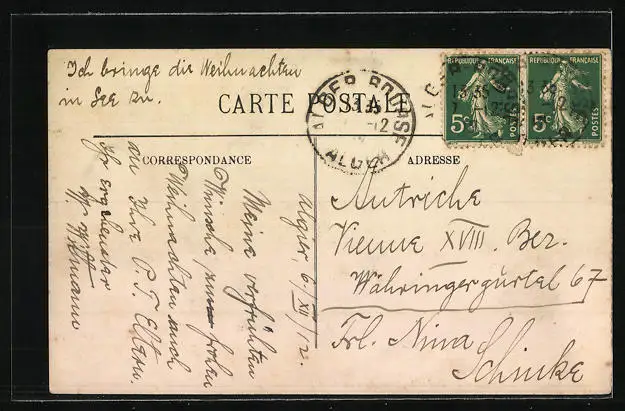 Ich bringe die Weihnachten
in See zu.
CARTE POSTALE
ALGER BOURSE
7 -12
ALGER
REPUBLIQUE FRANÇAISE
5c
POSTES
REPUBLIQUE FRANÇAISE
5c
POSTES
CORRESPONDANCE
ADRESSE
Algier, 6/XII/12.
Meine verfrühten
Wünsche zu frohen
Weihnachten auch
an Ihre P. T. Eltern.
Ihr Ergebenster
Autriche
Vienne XVIII. Bez.
Währingergürtel 67
Frl. Nina
Schinke